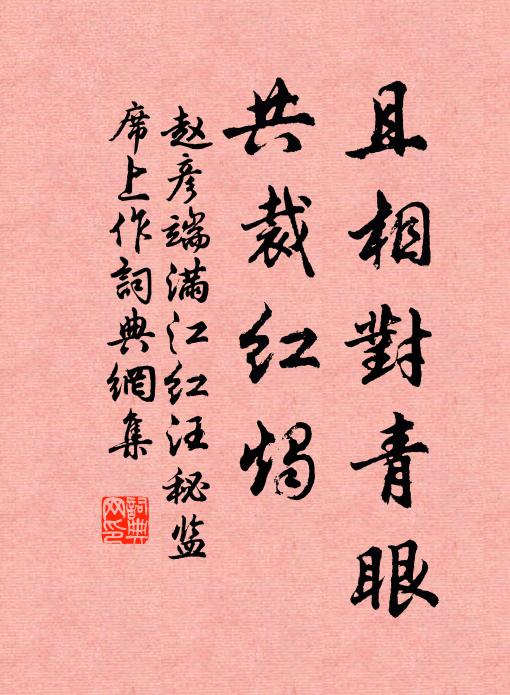 且相對青眼
共裁红燭
赵彦端满江红汪秘监
席上作詞典網集
詞典
网印